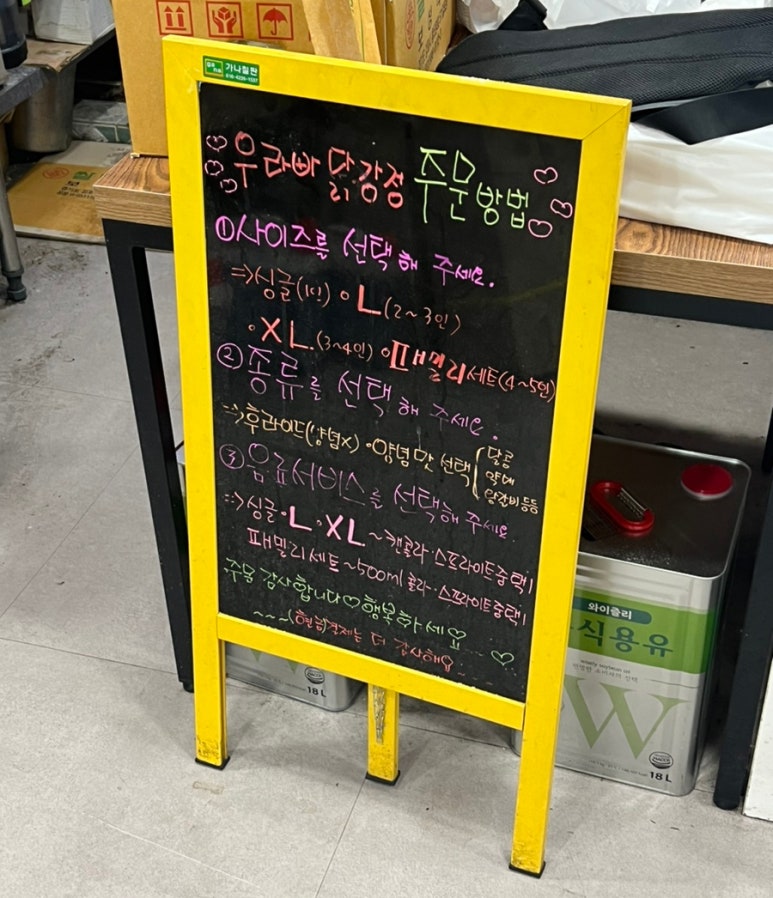 가나칠판
우라빠 닭강정 주문방법
①사이즈를 선택해 주세요.
=>싱글(1인) •L(2~3인)
•XL.(3~4인) •패밀리세트(4~5인)
②종류를 선택해 주세요.
=>후라이드(양념x) •양념맛 선택
달콤
양갈비등등
③음료서비스를 선택해 주세요.
=>싱글•L•XL~캔콜라•스프라이트중택1
패밀리세트~500ml 콜라•스프라이트중택1
주문 감사합니다♡행복하세요
~~~(현금결제는 더 감사해요
와이즐리
식용유
W
18L
18L